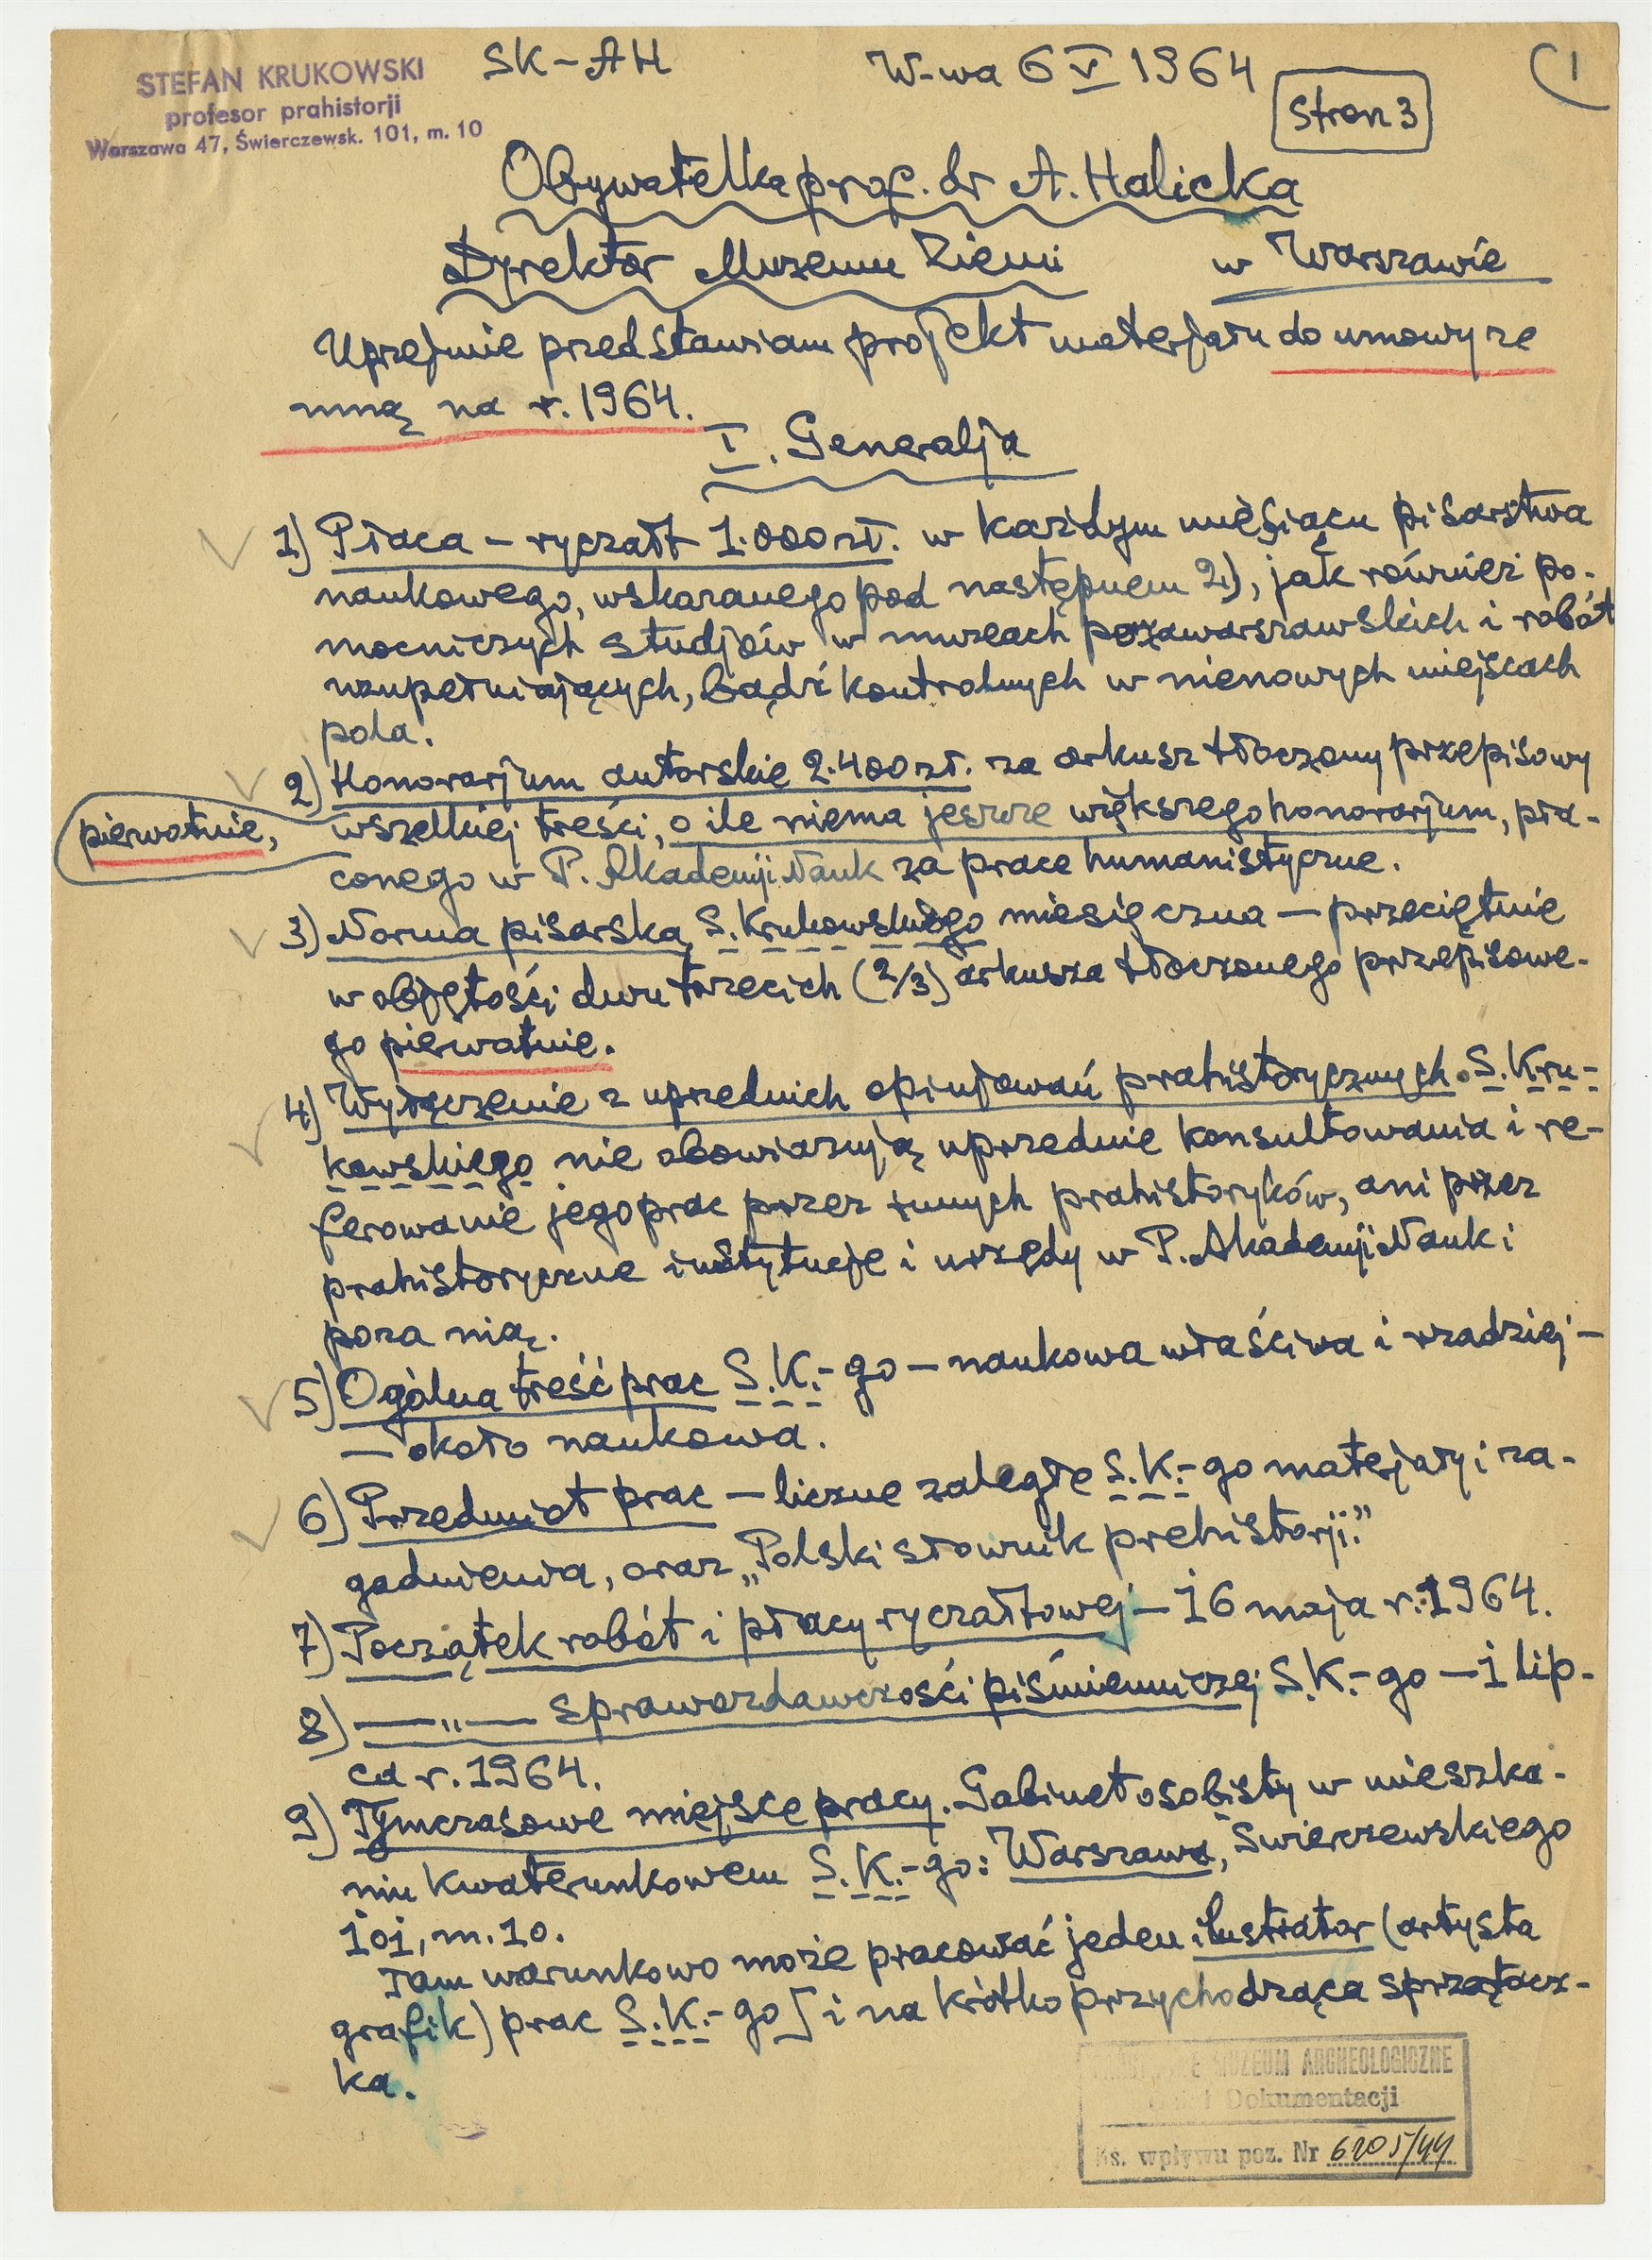 STEFAN KRUKOWSKI
profesor prahistorji
Warszawa 47, Świerczewsk. 101, m. 10
SK-AH
W-wa 6 V 1964
(1
Stron 3
Obywatelka prof. dr A. Halicka
Dyrektor Muzeum Ziemi w Warszawie
Uprzejmie przedstawiam projekt materjału do umowy ze
mną na r. 1964.
I. Generalja
1) Płaca – ryczałt 1.000 zł. w każdym miesiącu pisarstwa
naukowego, wskazanego pod następnem 2), jak również po-
mocniczych studjów w muzeach pozawarszawskich i robót
uzupełniających, bądź kontrolnych w nienowych miejscach
pola.
2) Honorarjum autorskie 2.400 zł. za arkusz tłoczony przepisowy
pierwotnie,
wszelkiej treści, o ile niema jeszcze większego honorarjum, pła-
conego w P. Akademji Nauk za prace humanistyczne.
3) Norma pisarska S. Krukowskiego miesięczna – przeciętnie
w objętości dwu trzecich (2/3) arkusza tłoczonego przepisowe-
go pierwotnie.
4) Wyłączenie z uprzednich opinjowań prahistorycznych. S. Kru-
kowskiego nie obowiązują uprzednie konsultowania i re-
ferowanie jego prac przez innych prahistoryków, ani przez
prahistoryczne instytucje i urzędy w P. Akademji Nauk i
poza nią.
5) Ogólna treść prac S.K.-go – naukowa właściwa i rzadziej –
– około naukowa.
6) Przedmiot prac – liczne zaległe S.K.-go materjały i za-
gadnienia, oraz „Polski słownik prehistorji."
7) Początek robót i płacy ryczałtowej – 16 maja r. 1964.
8) —"— sprawozdawczości piśmienniczej S.K.-go – 1 lip-
ca r. 1964.
9) Tymczasowe miejsce pracy. Gabinet osobisty w mieszka-
niu kwaterunkowem S.K.-go: Warszawa, Swierczewskiego
101, m. 10.
Tam warunkowo może pracować jeden ilustrator (artysta
grafik) prac S.K.-go i na krótko przychodząca sprzątacz-
ka.
MUZEUM ARCHEOLOGICZNE
Dokumentacji
Ks. wpływu poz. Nr 6205/44